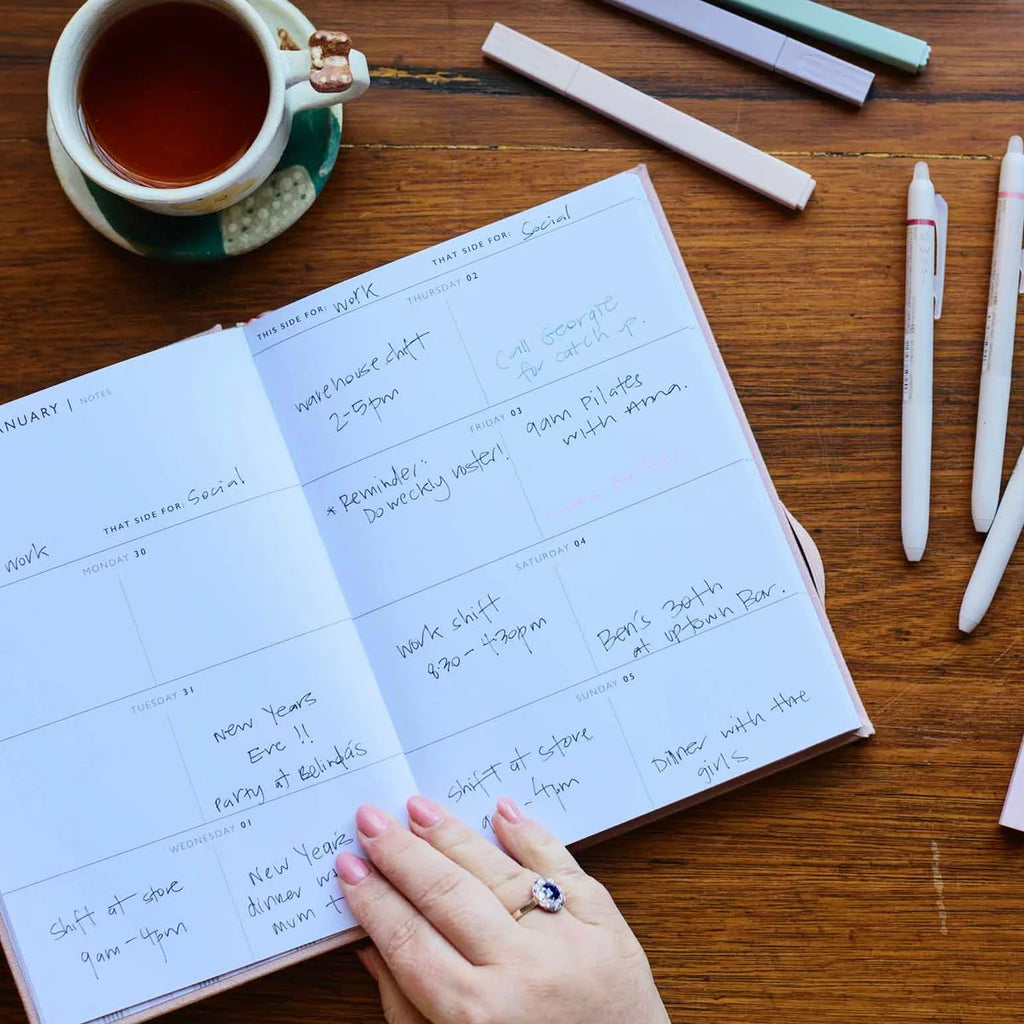 ANUARY | NOTES
work
THAT SIDE FOR: Social
MONDAY 30
TUESDAY 31
New Years
Eve !!
Party at Belinda's
WEDNESDAY 01
Shift at store
9am - 4pm
New Year's
dinner
mum
THIS SIDE FOR: work
THAT SIDE FOR: Social
THURSDAY 02
warehouse shift
2-5pm
Call Georgie
for catch up.
FRIDAY 03
* Reminder:
Do weekly roster!
9am Pilates
with Anna.
SATURDAY 04
work shift
8:30 - 4:30pm
Ben's 30th
at uptown Bar.
SUNDAY 05
Shift at store
- 4pm
Dinner with the
girls